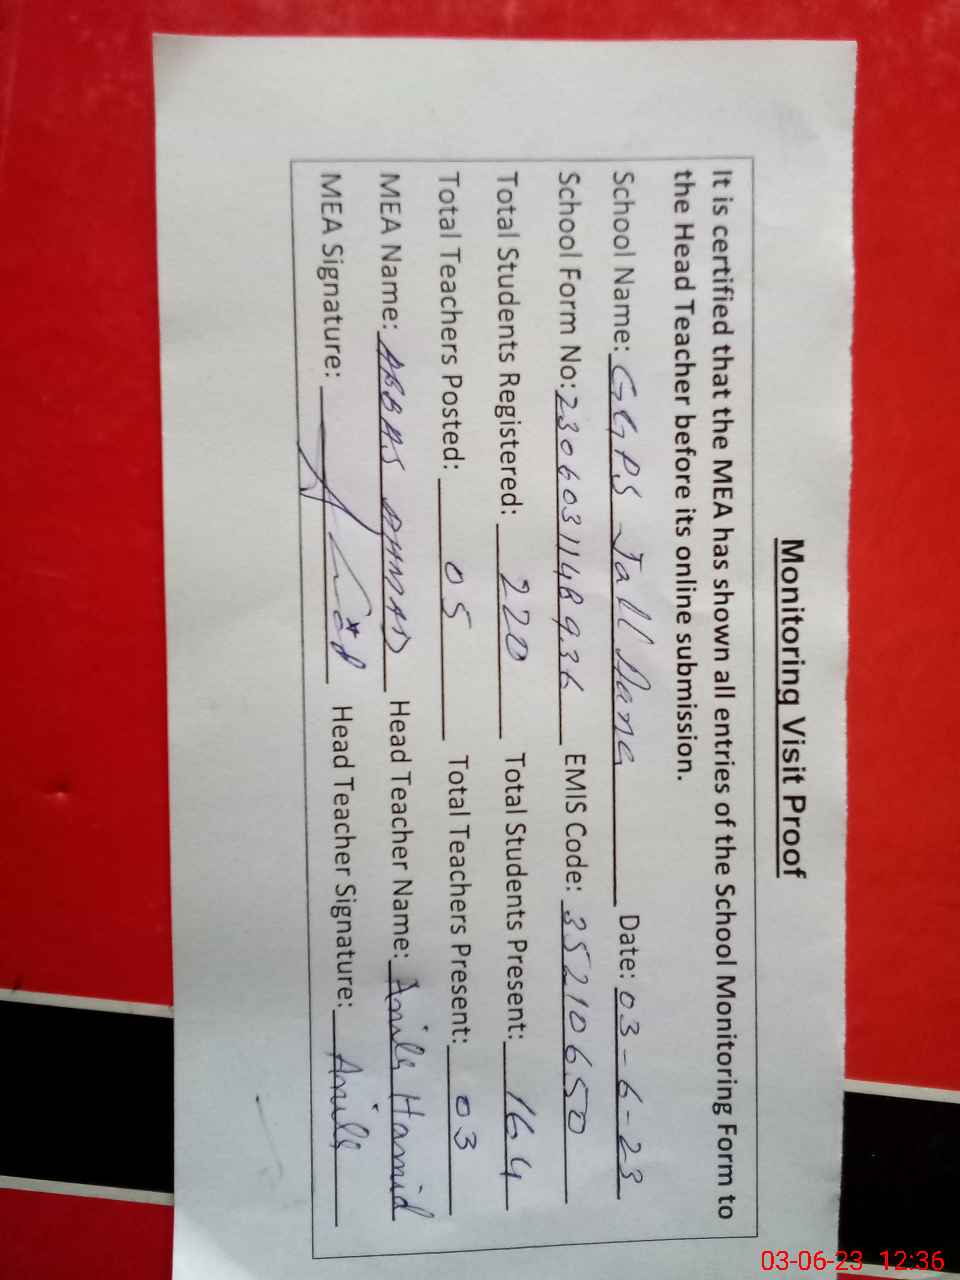 Monitoring Visit Proof
It is certified that the MEA has shown all entries of the School Monitoring Form to
the Head Teacher before its online submission.
School Name: GGPS Jall Dana Date: 03-6-23
School Form No: 230603114B936 EMIS Code: 35210650
Total Students Registered: 220 Total Students Present: 164
Total Teachers Posted: 05 Total Teachers Present: 03
MEA Name: ABBAS AHMAD Head Teacher Name: Anila Hamid
MEA Signature: Head Teacher Signature: Anila
03-06-23 12:36